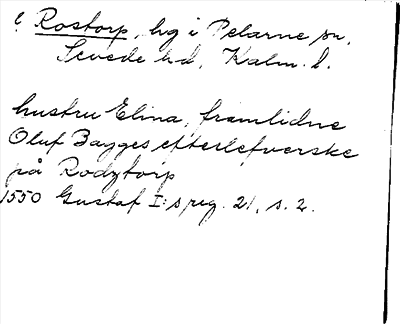 ? Rostorp, hg i Pelarne sn,
Sevede hd, Kalm. l.
hustru Elina, framlidne
Oluf Bagges efterlefverske
på Rodztorp
1550 Gustaf I:s reg. 21, s. 2.